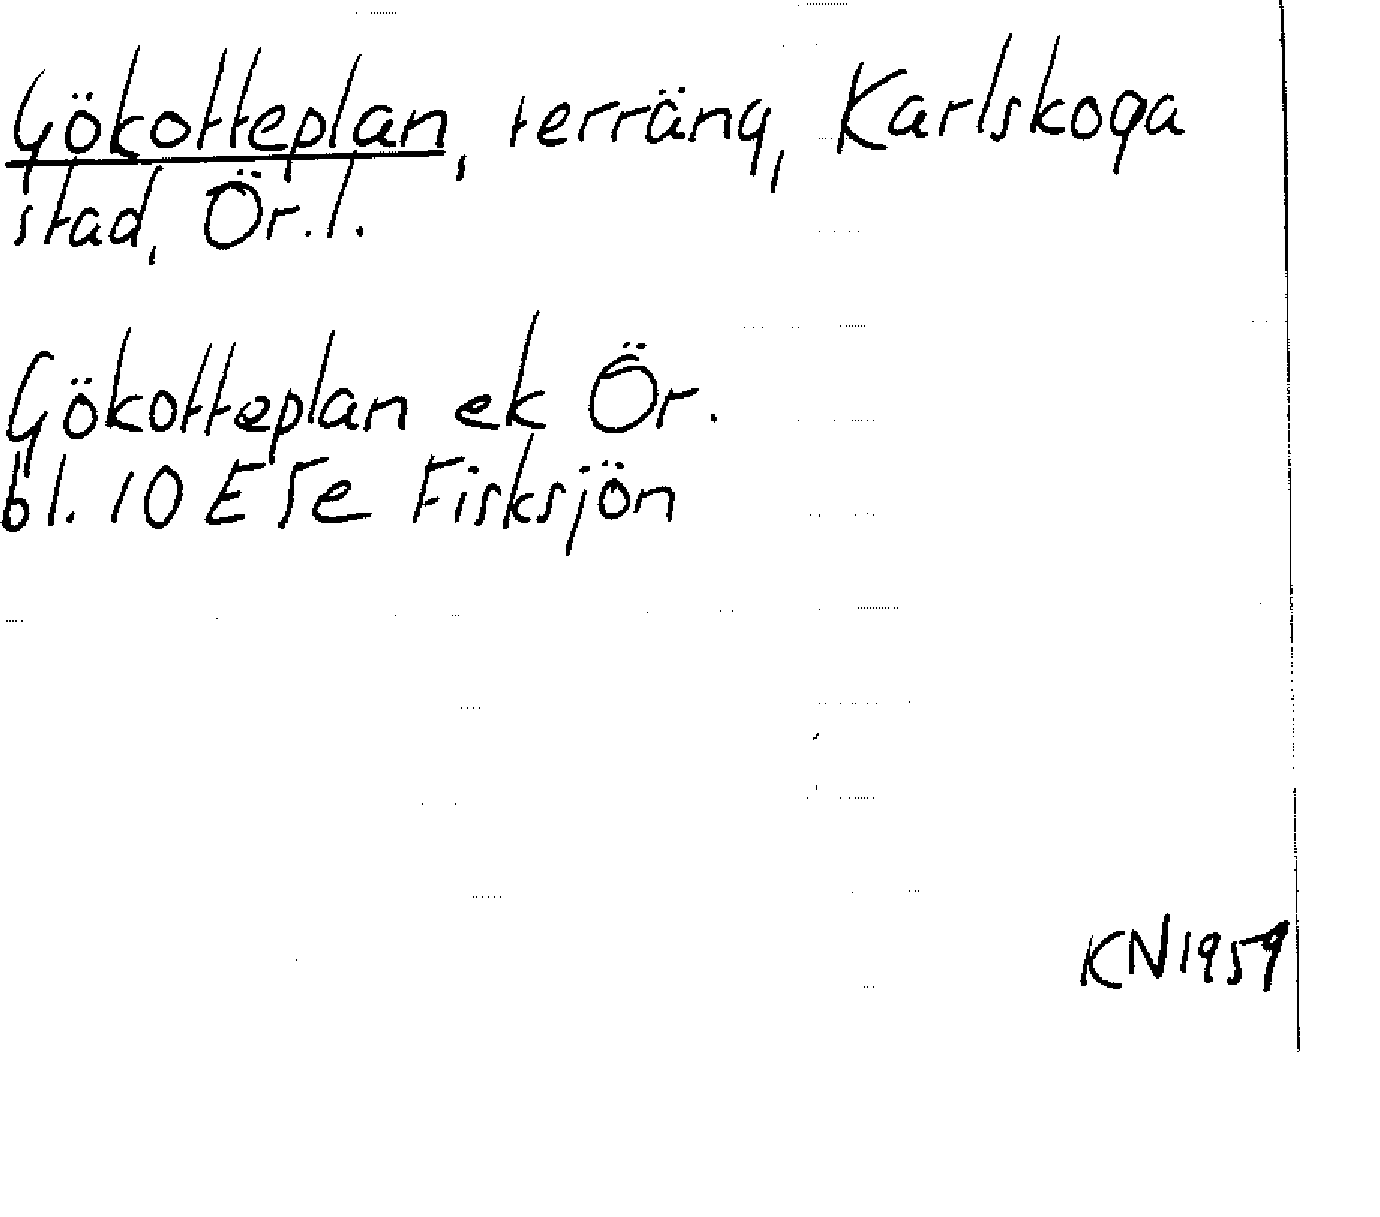 Gökotteplan, terräng, Karlskoga
stad, Ör. l.
Gökotteplan ek Ör.
bl. 10 E 5e Fisksjön
KN 1959